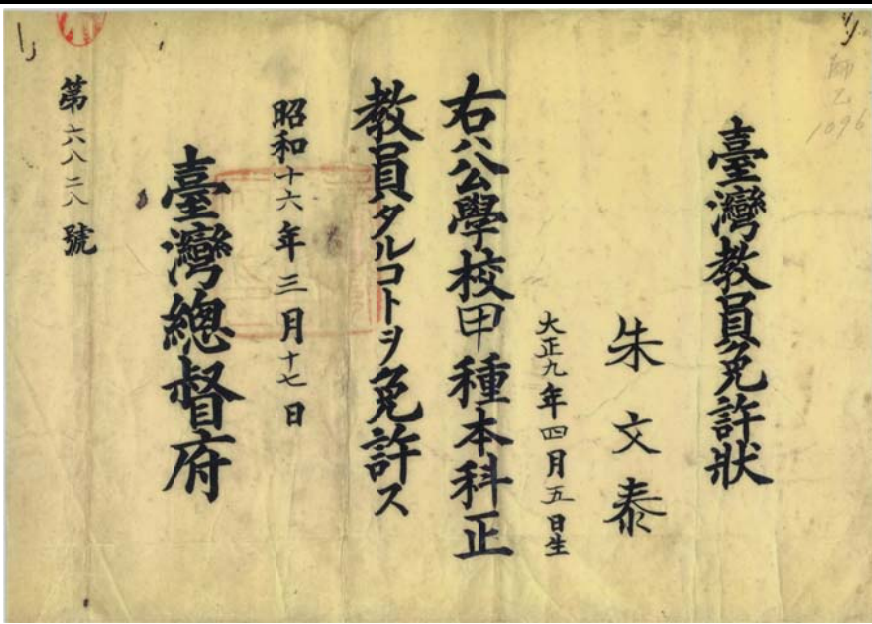 臺灣教員免許狀
朱文泰
大正九年四月五日生
右ハ公學校甲種本科正
教員タルコトヲ免許ス
昭和十六年三月十七日
臺灣總督府
第六八二八號
師乙
1096